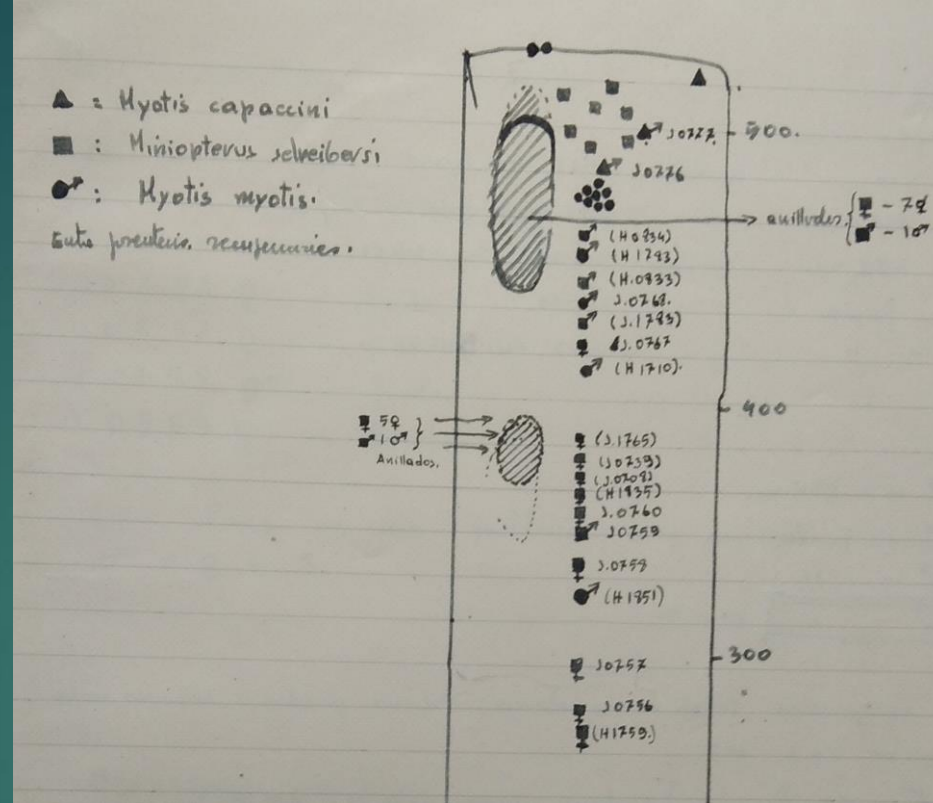 ▲ : Myotis capaccini
■ : Miniopterus schreibersi
●♂ : Myotis myotis.
Entre
J0777.
500.
J0776
anillados. { ■♀ - 7♀
■♂ - 1♂
(H0834)
(H1783)
(H.0833)
J.0768.
(J.1783)
J.0767
(H1710).
400
■♀ 5♀
■♂ 1♂ }
Anillados.
(J.1765)
(J0739)
(H1835)
J.0760
J0759
J.0758
(H1851)
300
J0757
J0756
(H1759.)